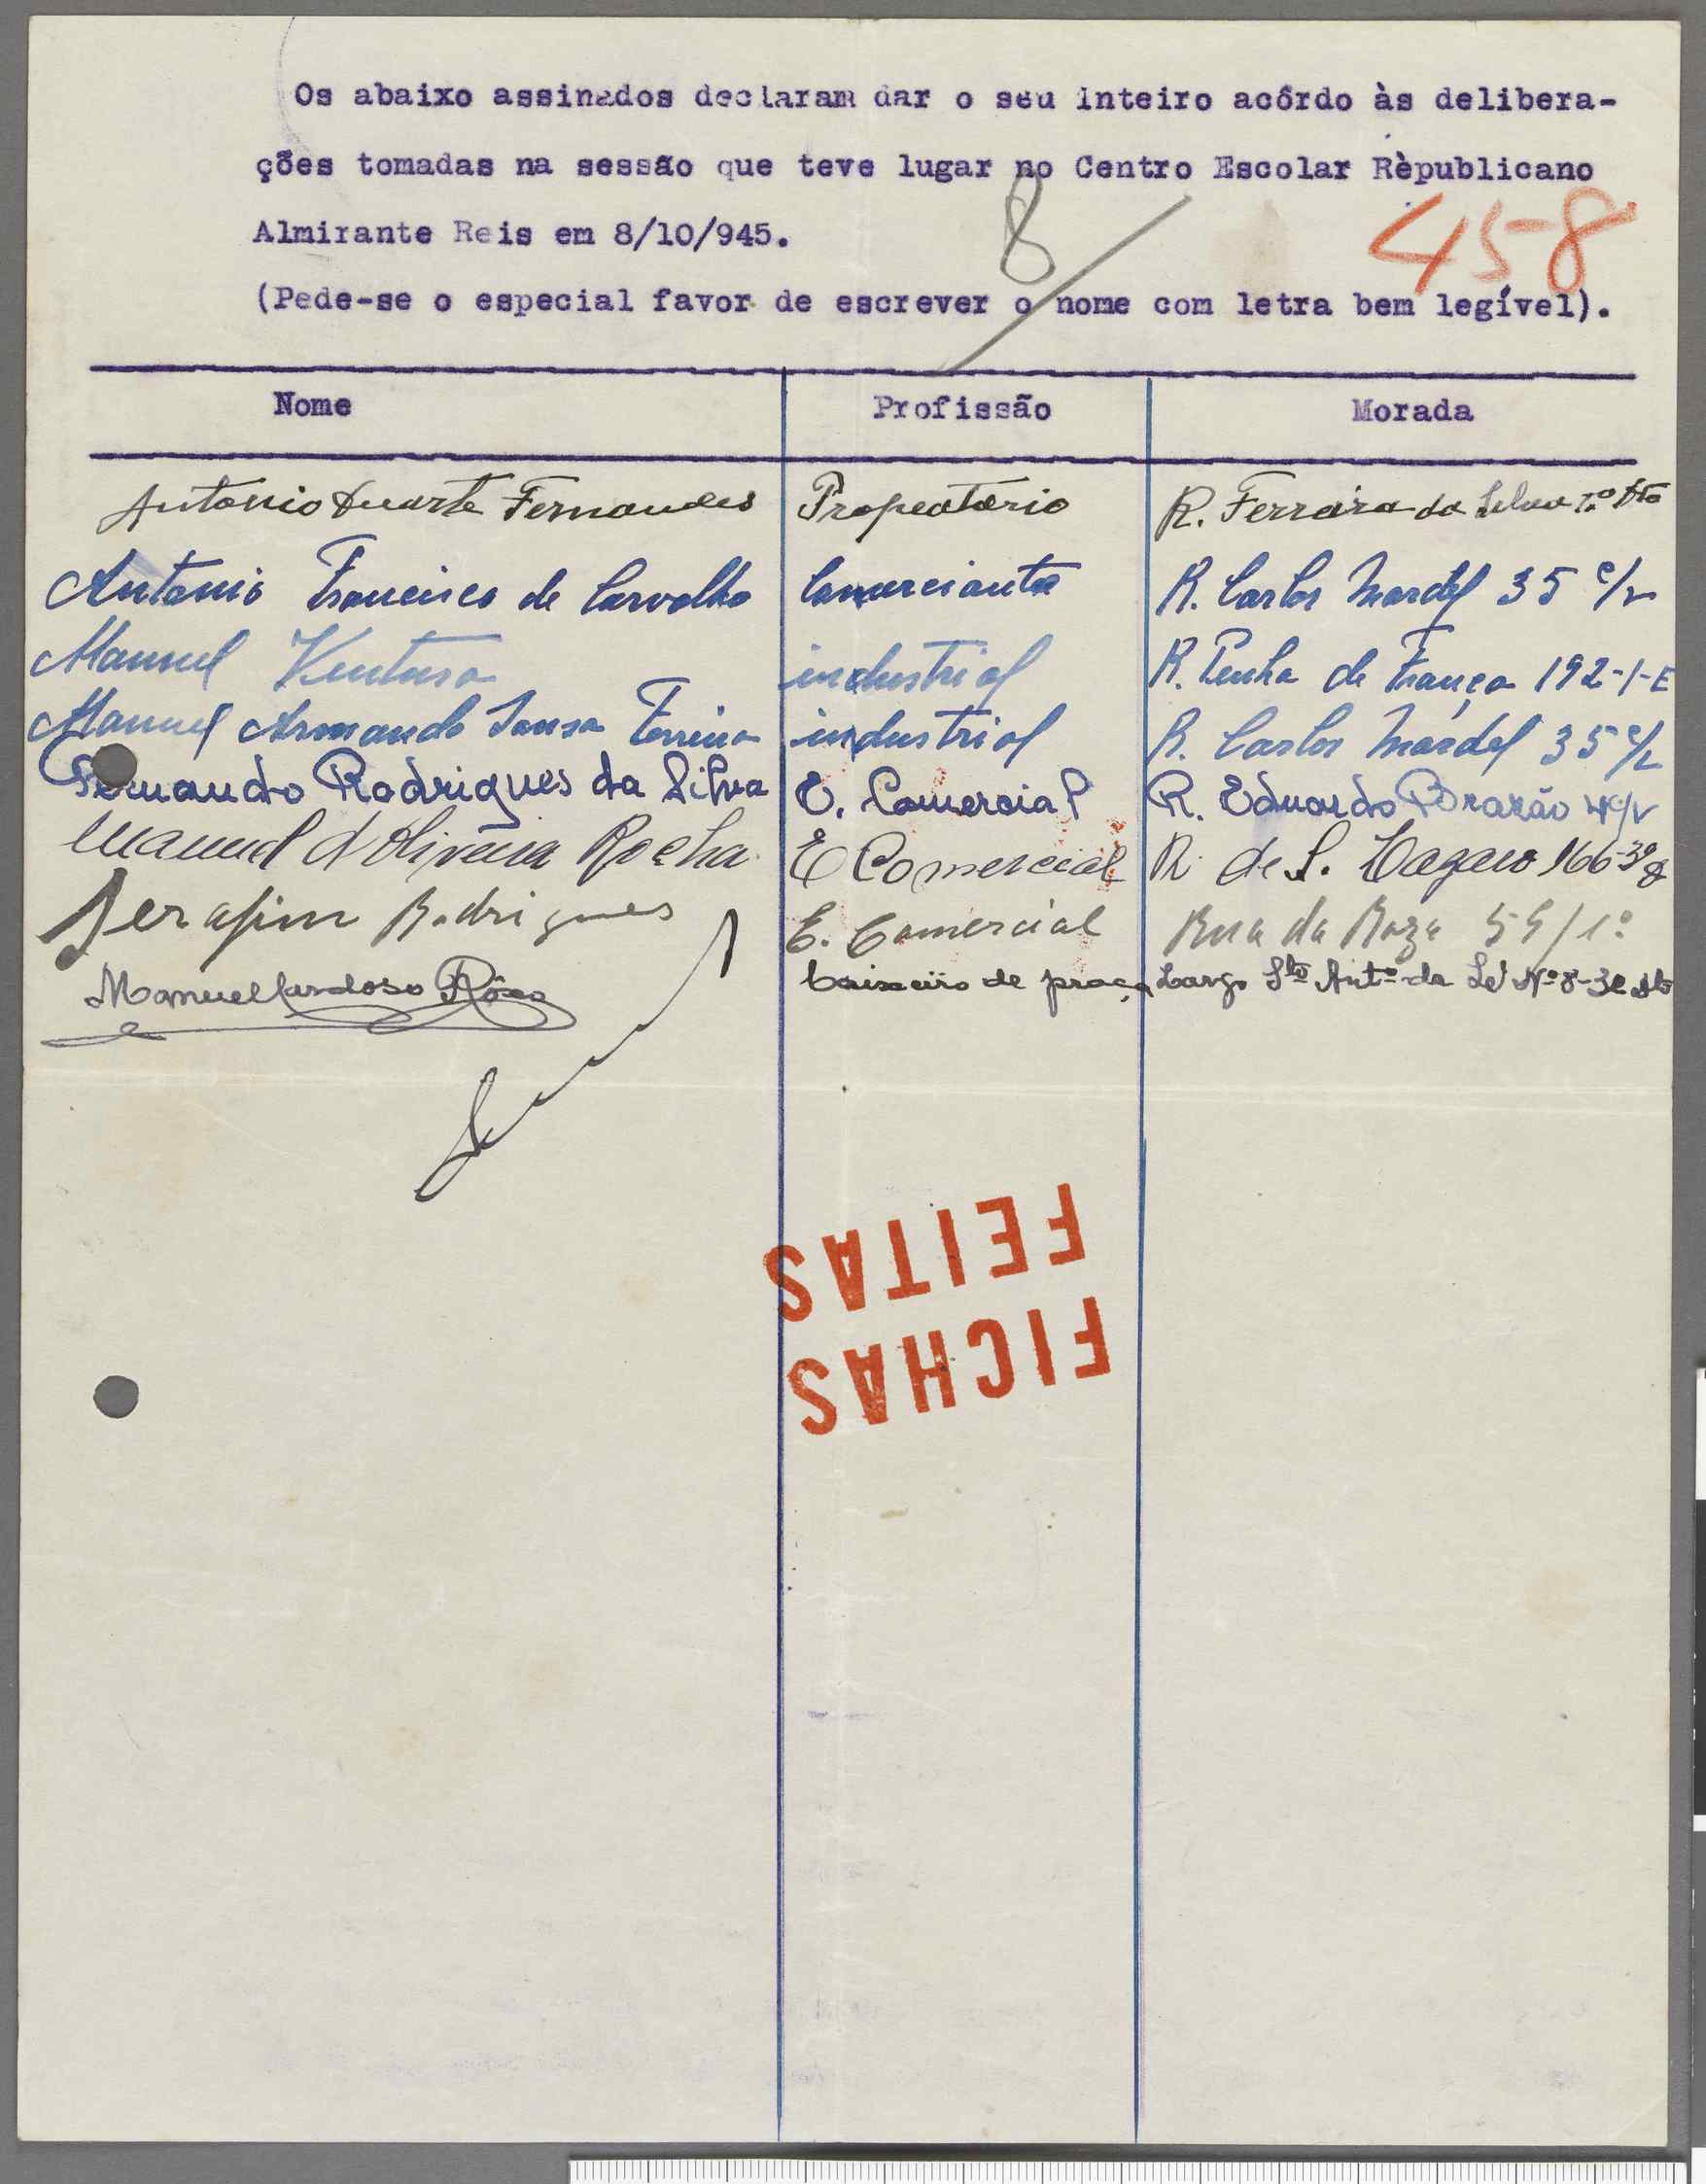 Os abaixo assinados declaram dar o seu inteiro acôrdo às delibera-
ções tomadas na sessão que teve lugar no Centro Escolar Rèpublicano
Almirante Reis em 8/10/945.
8
458
(Pede-se o especial favor de escrever o nome com letra bem legível).
Nome Profissão Morada
Antonio Duarte Fernandes Propeatario R. Ferreira da Silva 1º Dto
Antonio Francisco de Carvalho Comerciante R. Carlos Mardel 35 c/v
Manuel Ventura industrial R. Penha de França 192-1-E
Manuel Armando Sousa Ferreira industrial R. Carlos Mardel 35 c/v
Fernando Rodrigues da Silva E. Comercial R. Eduardo Brazão 4 c/v
Manuel d'Oliveira Rocha E Comercial R. de S. Lazaro 166-3º
Serafim Rodrigues E. Comercial Rua da Roza 59/1º
Manuel Cardoso Rôxo Caixeiro de praça Largo Sto Antº da Sé Nº 8-3º Dto
FICHAS
FEITAS